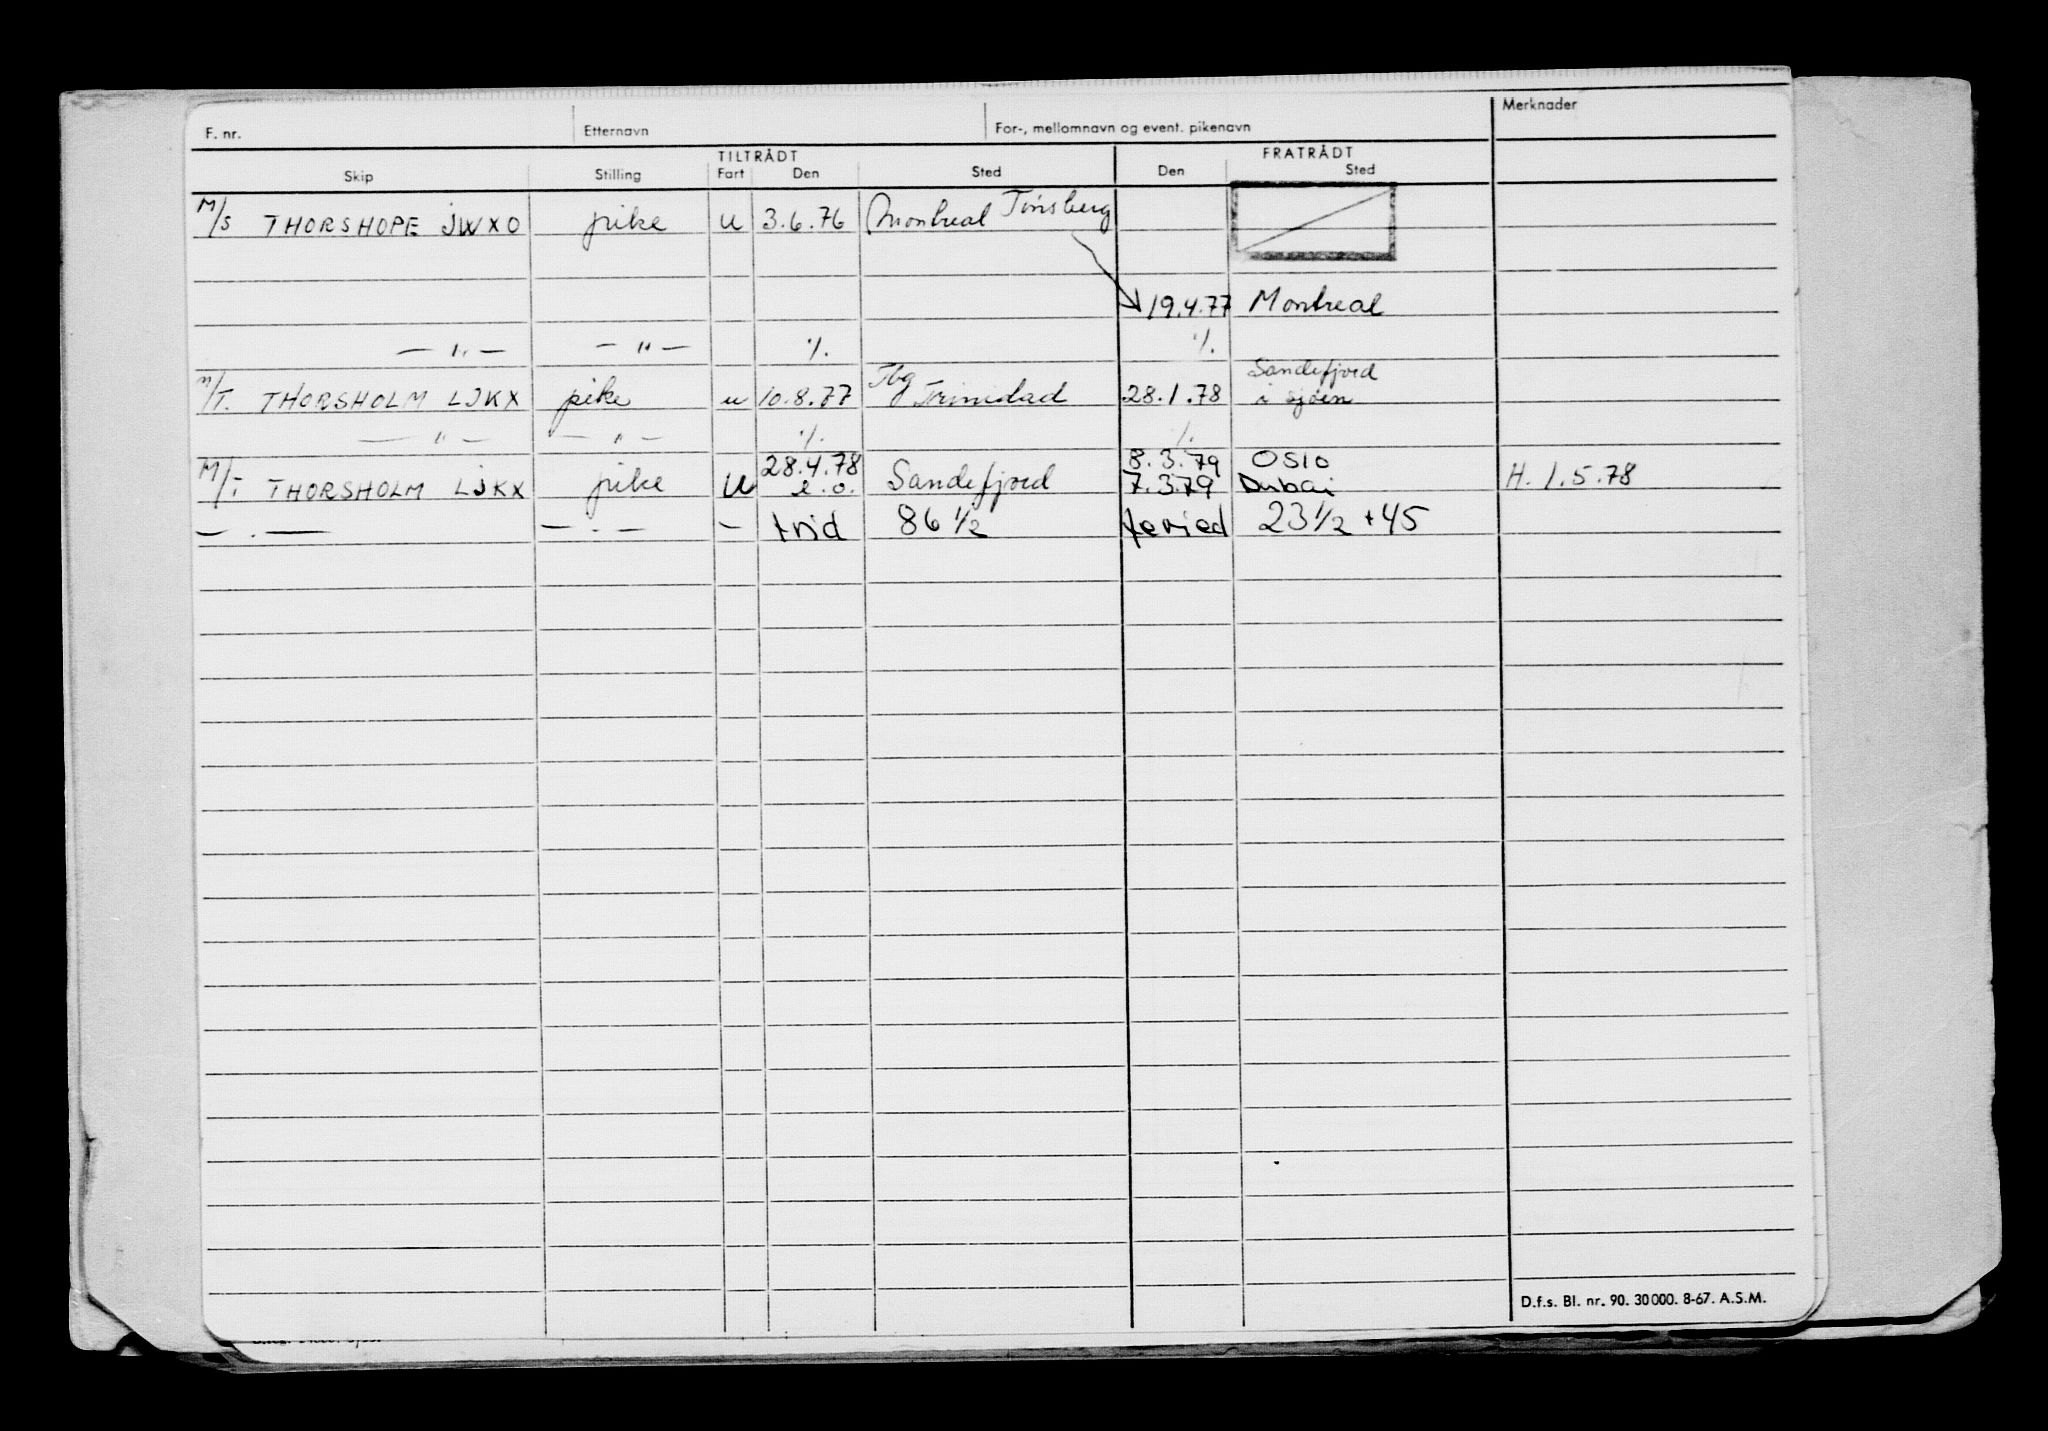 F. nr. Etternavn For-, mellomnavn og event. pikenavn Merknader
TILTRÅDT FRATRÅDT
Skip Stilling Fart Den Sted Den Sted
M/S THORSHOPE JWXO pike u 3.6.76 Montreal Tønsberg
19.4.77 Montreal
— " — — " — ·/. ·/.
M/T. THORSHOLM LJKX pike u 10.8.77 Tbg Trinidad 28.1.78 Sandefjord i sjøen
— " — — " — ·/. ·/.
M/T THORSHOLM LJKX pike u 28.4.78 e.o. Sandefjord 8.3.79 Oslo H. 1.5.78
7.3.79 Dubai
— . — — . — — trid 86 1/2 feried 23 1/2 + 45
D.f.s. Bl. nr. 90. 30000. 8-67. A.S.M.